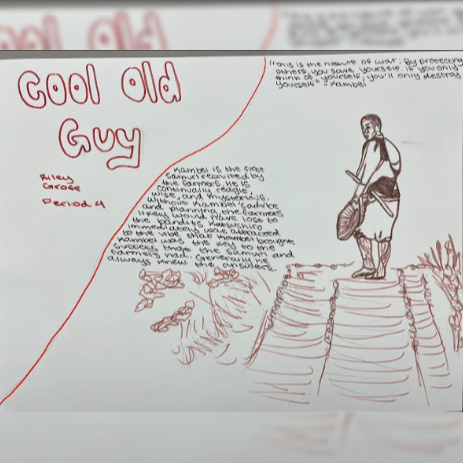 Cool Old
Guy
Riley
Grose
Period 4
"This is the nature of war: By protecting
others, you save yourselves. If you only
think of yourself, you'll only destroy
yourself" - Kambei
Kambei is the first
samuri recruited by
the farmers. He is
continually readie,
wise, and mysterious.
Without Kambei's advice
and planning, the farmers
likely would have lost to
the bandits. Katsushiro
immediately was attracted
to the vibe that Kambei brought.
Kambei was the key to the
success that the samuri and
farmers had. Generally he
always knew the answers.